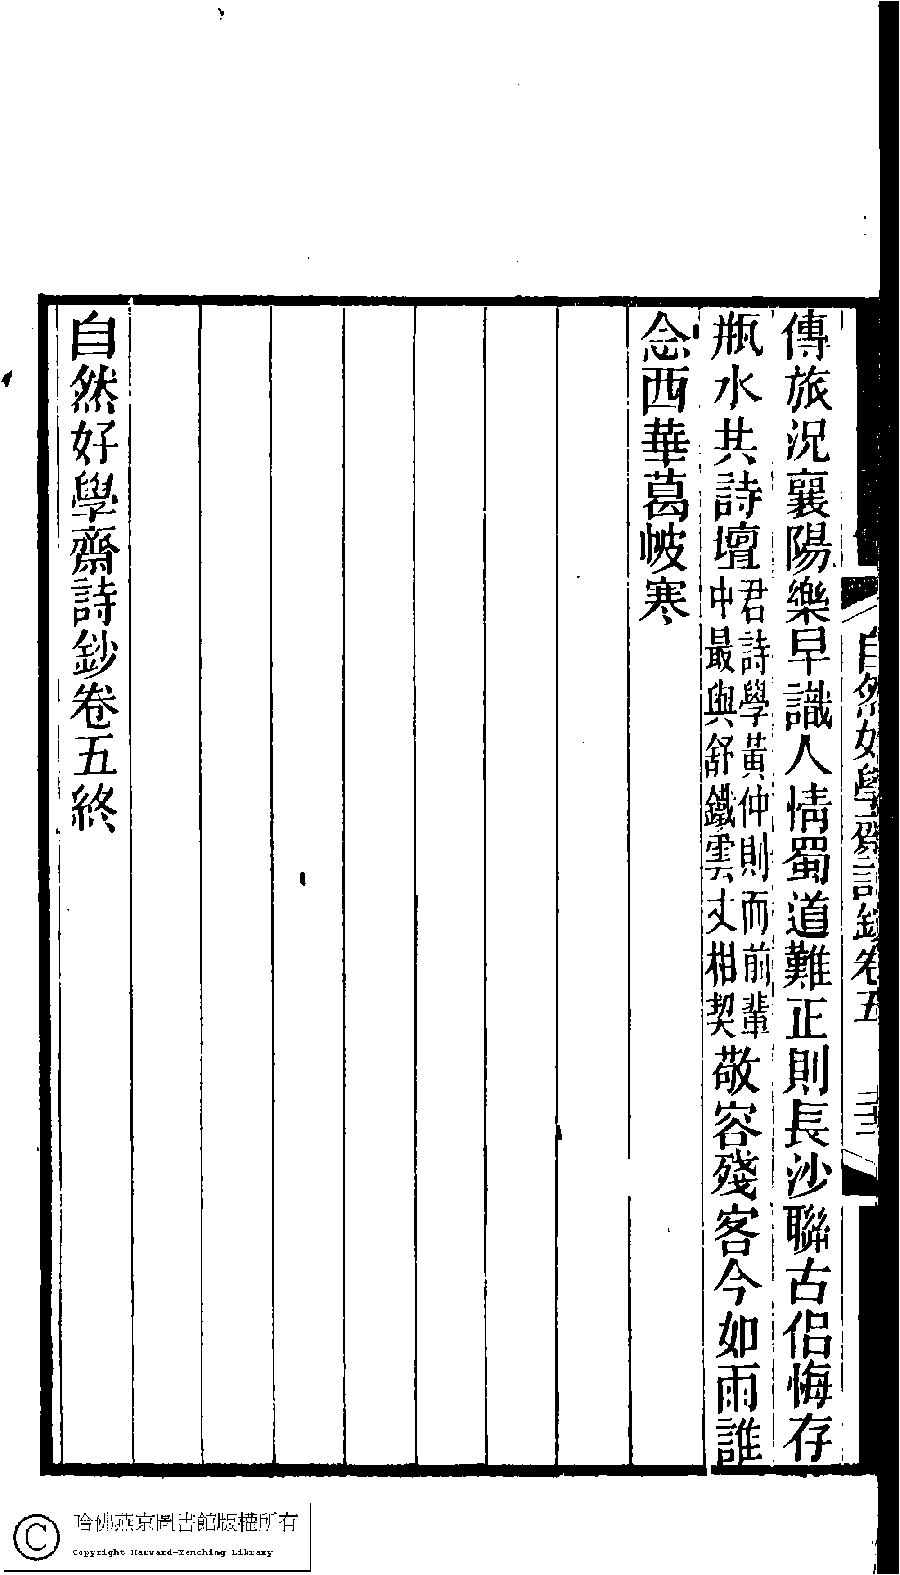 傳旅況襄陽樂早識人情蜀道難正則長沙聯古侶悔存
瓶水共詩壇君詩學黃仲則而前輩中最與舒鐵雲丈相契敬容殘客今如雨誰
念西華葛帔寒
自然好學齋詩鈔卷五終
自然好學齋詩鈔卷五
哈佛燕京圖書館版權所有
Copyright Harvard-Yenching Library